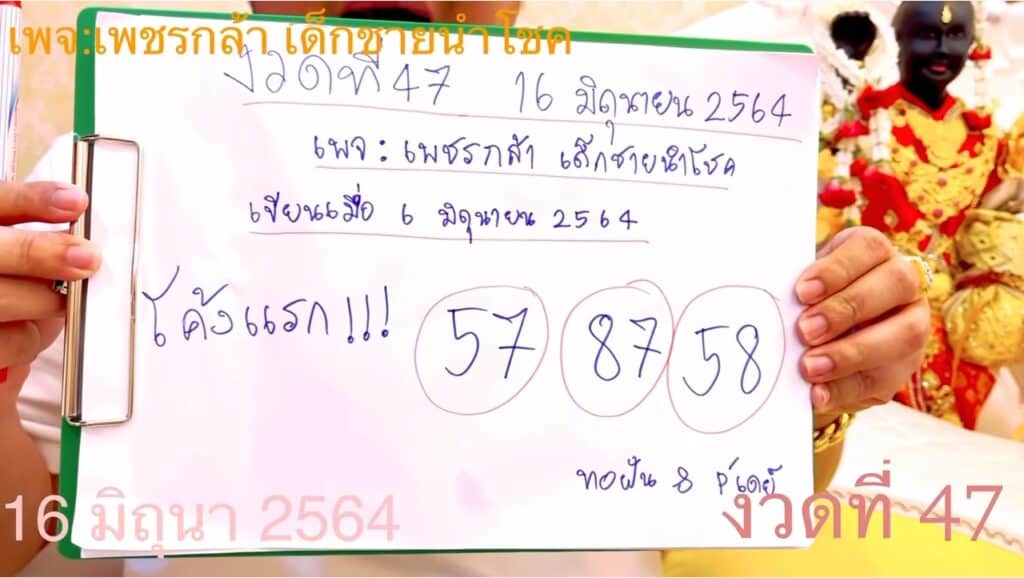 เพจ:เพชรกล้า เด็กชายนำโชค
งวดที่ 47 16 มิถุนายน 2564
เพจ : เพชรกล้า เด็กชายนำโชค
เขียนเมื่อ 6 มิถุนายน 2564
โค้งแรก!!! 57 87 58
ทอฝัน 8
16 มิถุนา 2564
งวดที่ 47